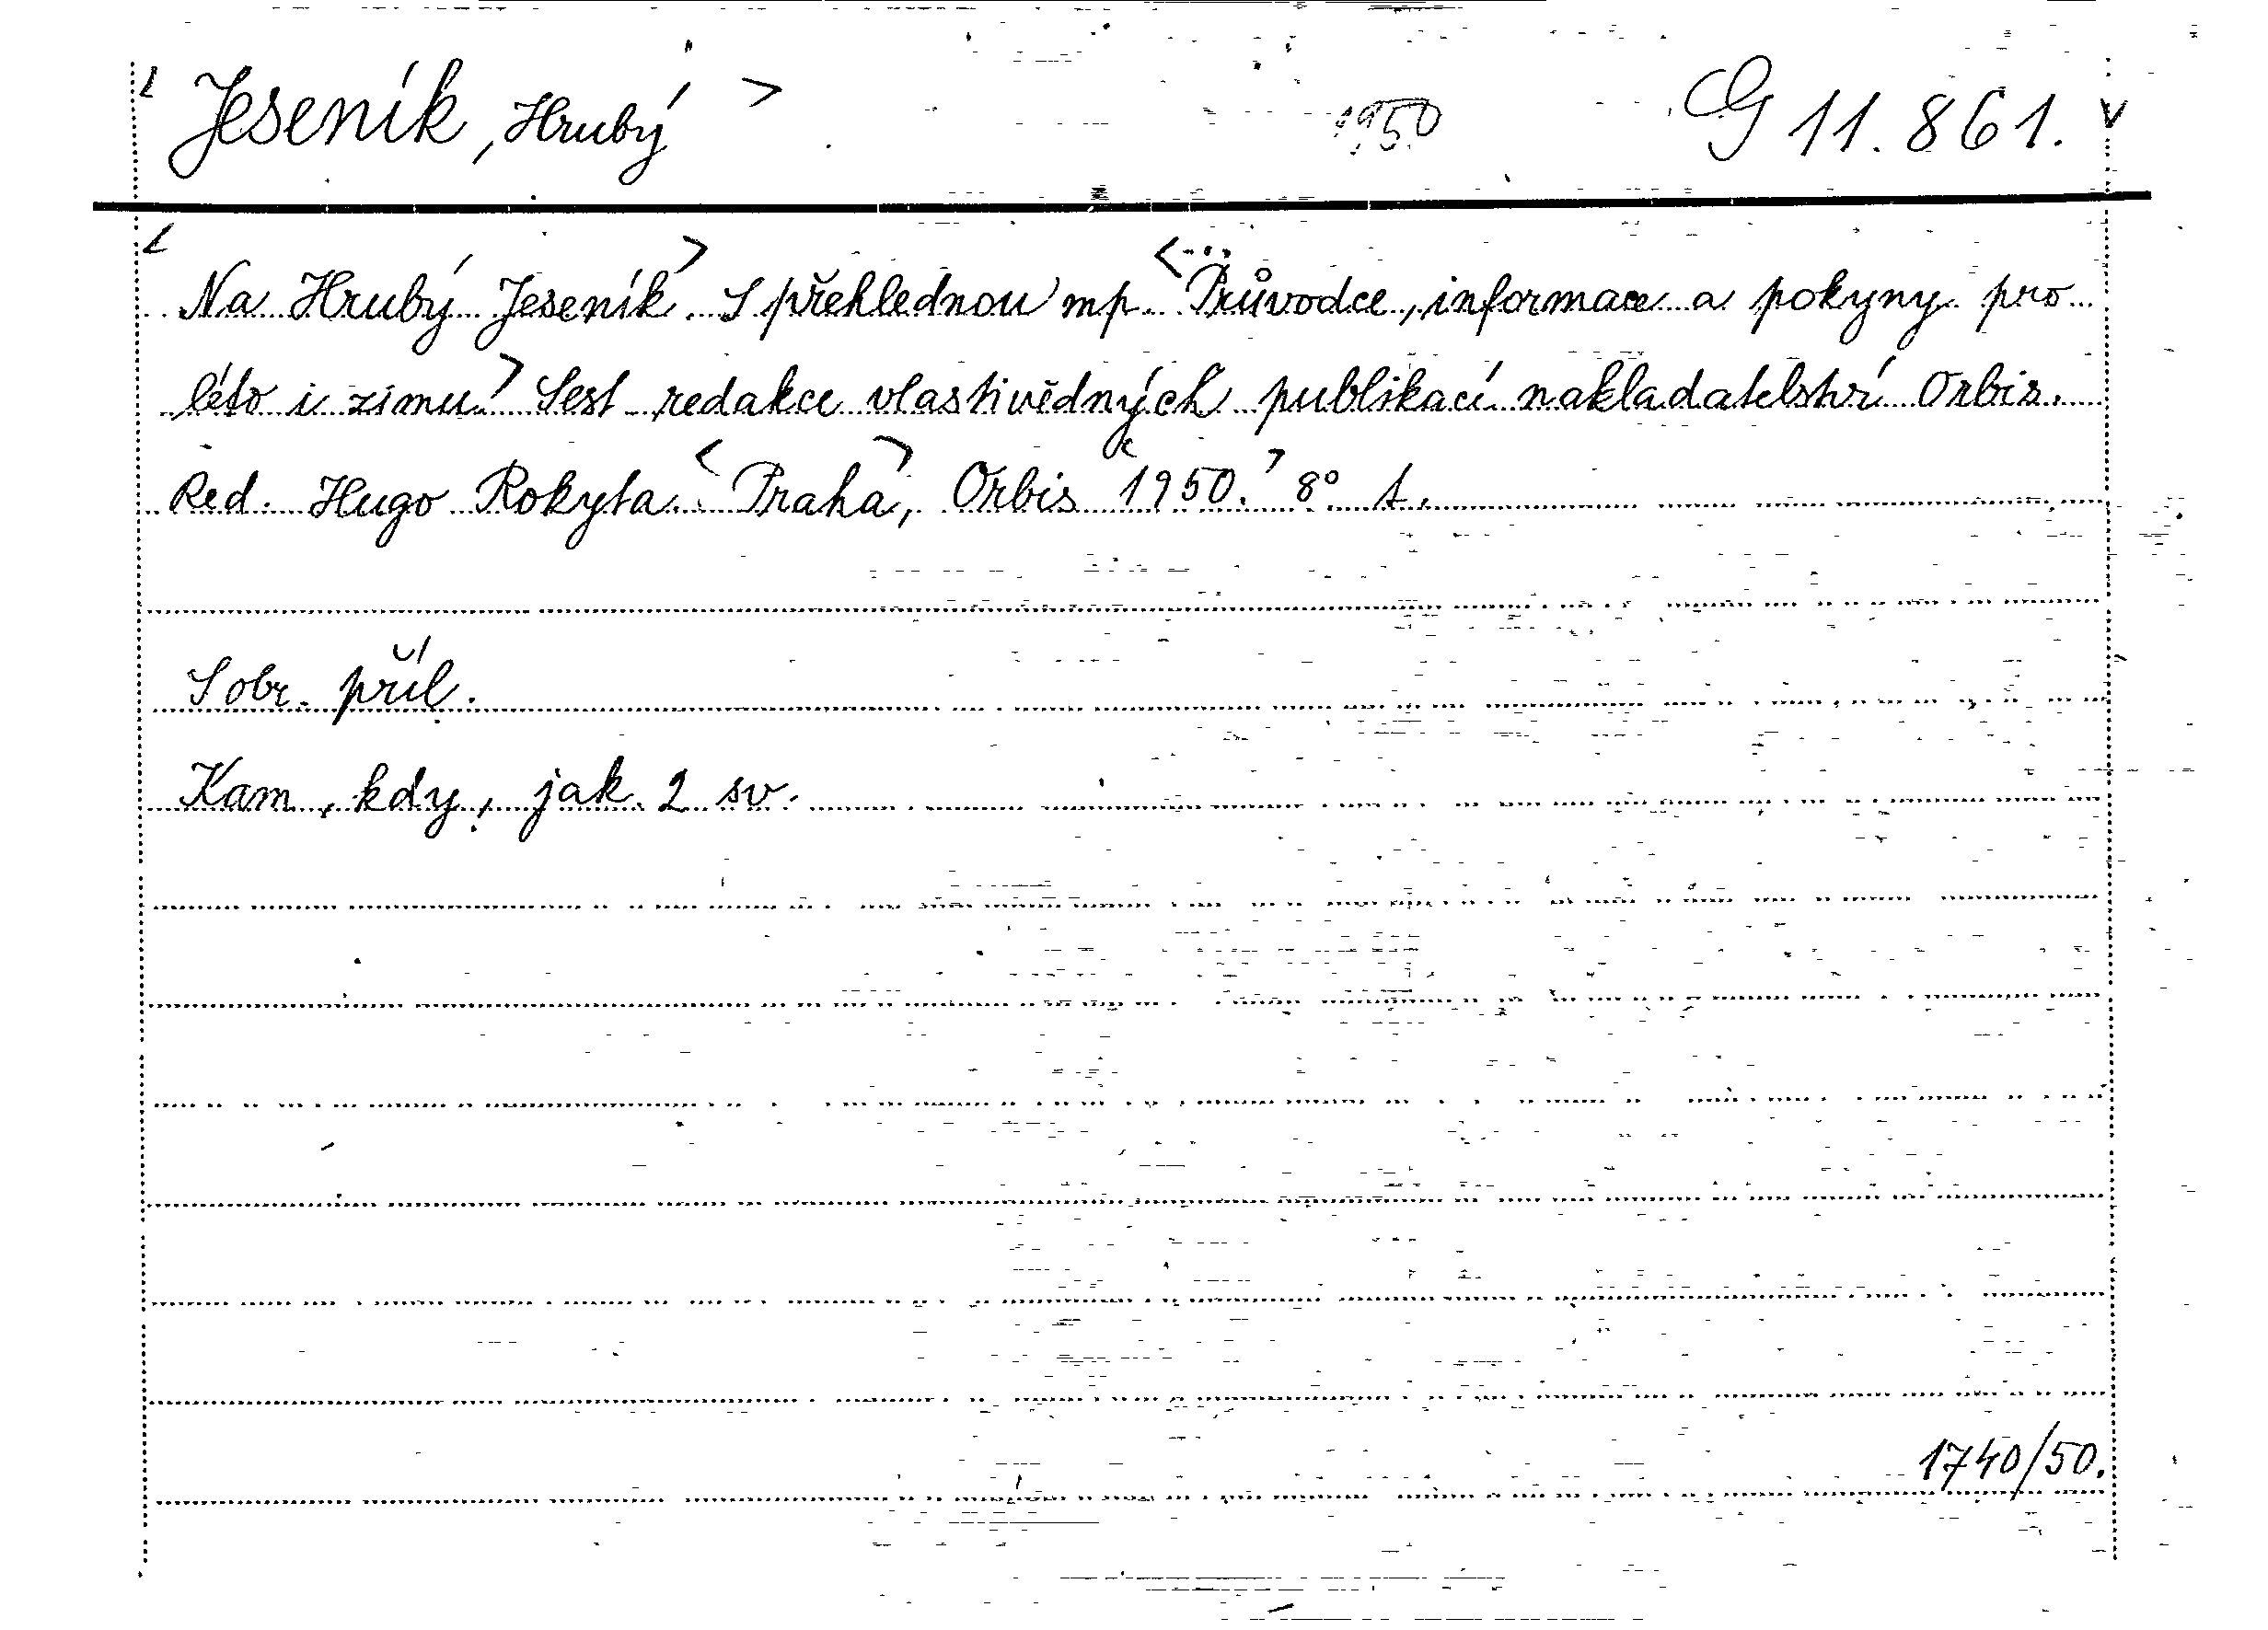 Jeseník, Hrubý 1950 G 11.861.
Na Hrubý Jeseník. S přehlednou mp. Průvodce, informace a pokyny pro
léto i zimu. Sest redakce vlastivědných publikací nakladatelství Orbis.
Red. Hugo Rokyta. Praha, Orbis 1950. 8°
S obr. příl.
Kam, kdy, jak. 2 sv.
1740/50.